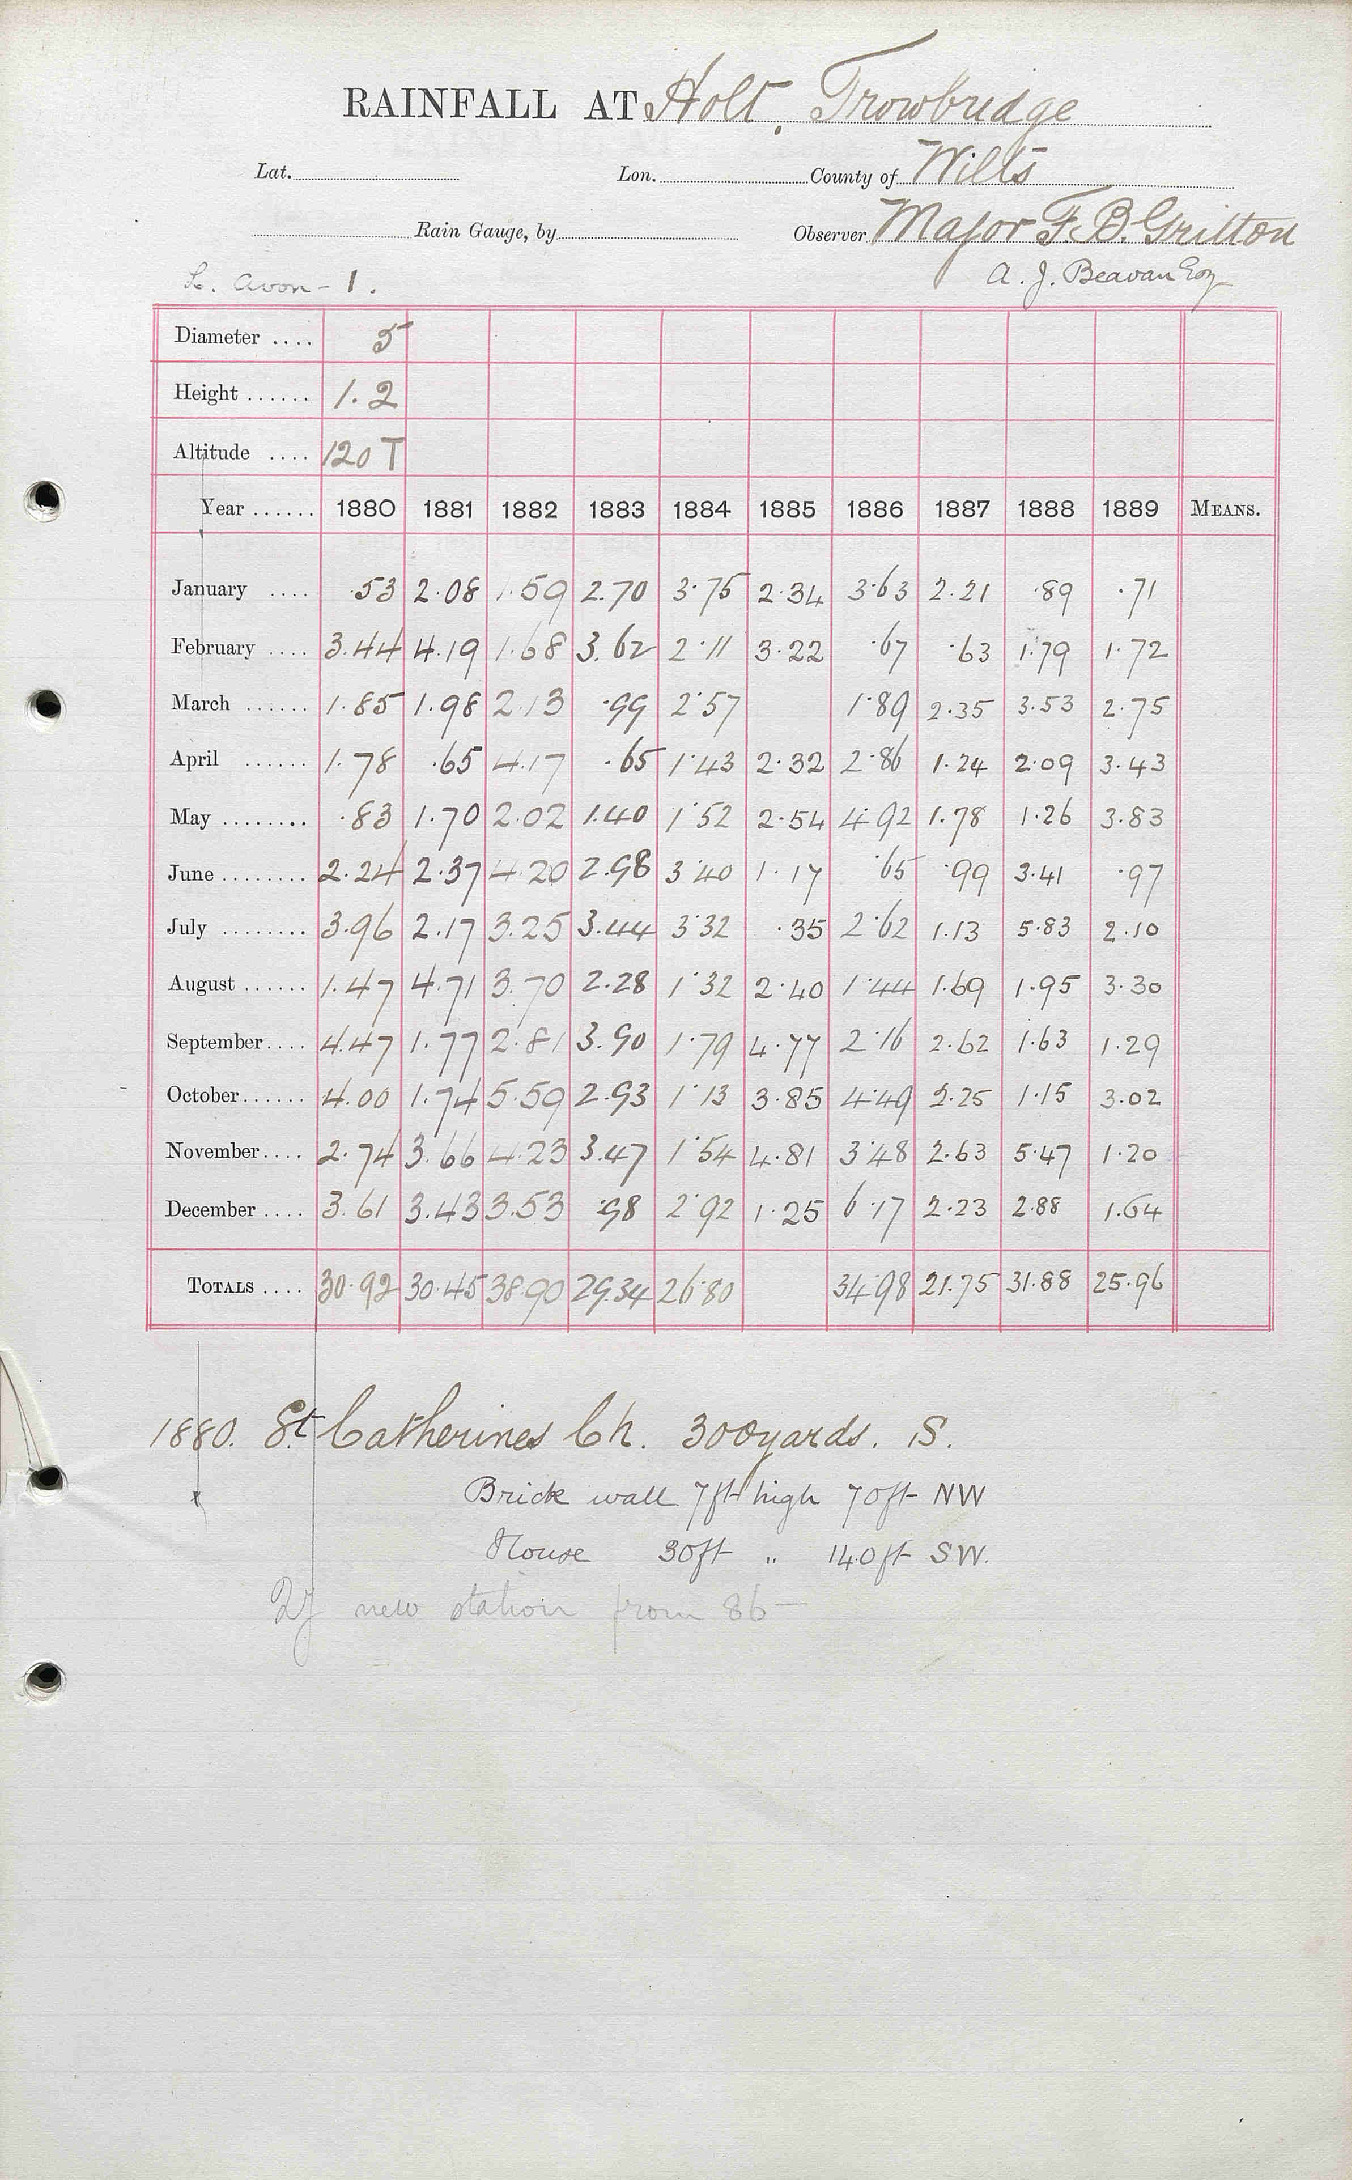 RAINFALL AT Holt, Trowbridge
Lat. Lon. County of Wilts
Rain Gauge, by Observer Major F. B. Gritton
L. Avon - 1. A. J. Beavan Esq
Diameter .... 5
Height ...... 1.2
Altitude .... 120 T
Year ...... 1880 1881 1882 1883 1884 1885 1886 1887 1888 1889 MEANS.
January .... .53 2.08 1.59 2.70 3.75 2.34 3.63 2.21 .89 .71
February .... 3.44 4.19 1.68 3.62 2.11 3.22 .67 .63 1.79 1.72
March ...... 1.85 1.98 2.13 .99 2.57 1.89 2.35 3.53 2.75
April ...... 1.78 .65 4.17 .65 1.43 2.32 2.86 1.24 2.09 3.43
May ........ .83 1.70 2.02 1.40 1.52 2.54 4.92 1.78 1.26 3.83
June ........ 2.24 2.37 4.20 2.98 3.40 1.17 .65 .99 3.41 .97
July ........ 3.96 2.17 3.25 3.44 3.32 .35 2.62 1.13 5.83 2.10
August ...... 1.47 4.71 3.70 2.28 1.32 2.40 1.44 1.69 1.95 3.30
September .... 4.47 1.77 2.81 3.90 1.79 4.77 2.16 2.62 1.63 1.29
October ...... 4.00 1.74 5.59 2.93 1.13 3.85 4.49 2.25 1.15 3.02
November .... 2.74 3.66 4.23 3.47 1.54 4.81 3.48 2.63 5.47 1.20
December .... 3.61 3.43 3.53 .98 2.92 1.25 6.17 2.23 2.88 1.64
TOTALS .... 30.92 30.45 38.90 29.34 26.80 34.98 21.75 31.88 25.96
1880. St. Catherines Ch. 300 yards. S.
Brick wall 7ft high 70ft NW
House 30ft " 140ft SW.
new station from 86